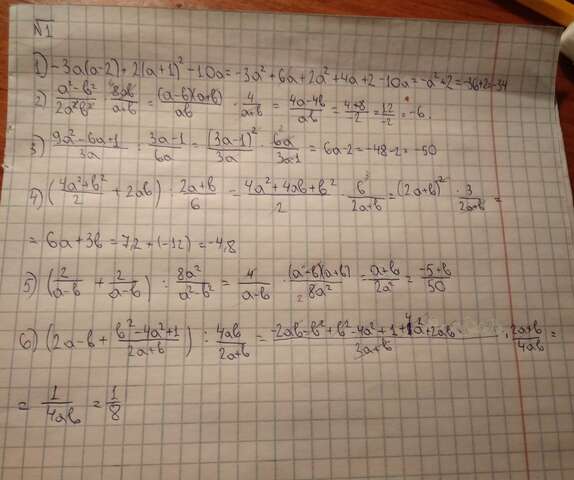 №1
1) -3a(a-2)+2(a+1)² -10a = -3a² +6a+2a² +4a+2-10a = -a²+2 = -36+2 = -34
2) (a²-b²)/(2a²b²) · 8ab/(a+b) = (a-b)(a+b)/ab · 4/(a+b) = (4a-4b)/ab = (4+8)/-2 = 12/-2 = -6.
3) (9a²-6a+1)/3a : (3a-1)/6a = (3a-1)²/3a · 6a/(3a-1) = 6a-2 = -48-2 = -50
4) ((4a²+b²)/2 + 2ab) : (2a+b)/6 = (4a²+4ab+b²)/2 · 6/(2a+b) = (2a+b)² · 3/(2a+b) =
= 6a+3b = 7,2+(-12) = -4,8
5) (2/(a-b) + 2/(a-b)) : 8a²/(a²-b²) = 4/(a-b) · (a-b)(a+b)/8a² = (a+b)/2a² = (-5+b)/50
6) (2a-b + (b²-4a²+1)/(2a+b)) : 4ab/(2a+b) = (-2ab-b²+b²-4a²+1+4a²+2ab)/(3a+b) · (2a+b)/4ab =
= 1/4ab = 1/8